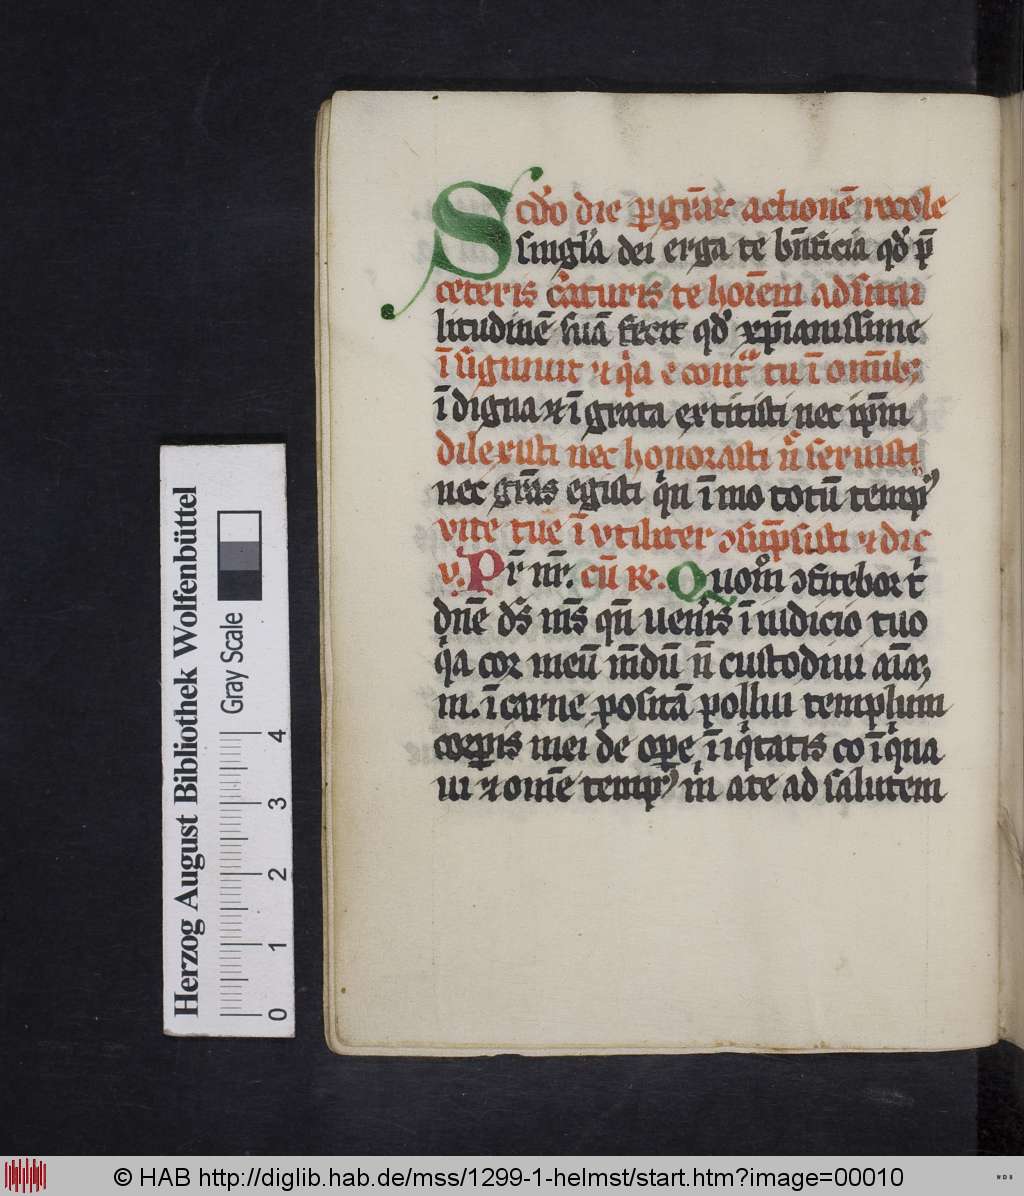 Scd'o die ꝑ gr̄aꝝ actionē recole
singl'a dei erga te bn̄ficia qd' p̄
ceteris c'aturis te hoīem ad simi
litudinē suā fecit qd' xp̄ianissime
ī signiuit ⁊ q'a e cont'a tu ī om̄ib;
ī digna ⁊ ī grata extitisti nec ip̄m
dilexisti nec honorasti n̄ seruisti
nec gr̄as egisti q'n ī mo totū temp'
vite tue ī vtiliter ↄsūpsisti ⁊ dic
v. Pr̄ nr̄. cū Re. Quom̊ ↄfitebor t'
dn̄e ds̄ ms̄ qn̄ uen'is ī iudicio tuo
q'a cor meū m̄dū n̄ custodiui aīaꝫ
m. ī carne positā pollui templum
corꝑis mei de oꝑe ī iq'tatis co īq'na
ui ⁊ omē temp' m' a te ad salutem
Herzog August Bibliothek Wolfenbüttel
Gray Scale
0 1 2 3 4
© HAB http://diglib.hab.de/mss/1299-1-helmst/start.htm?image=00010